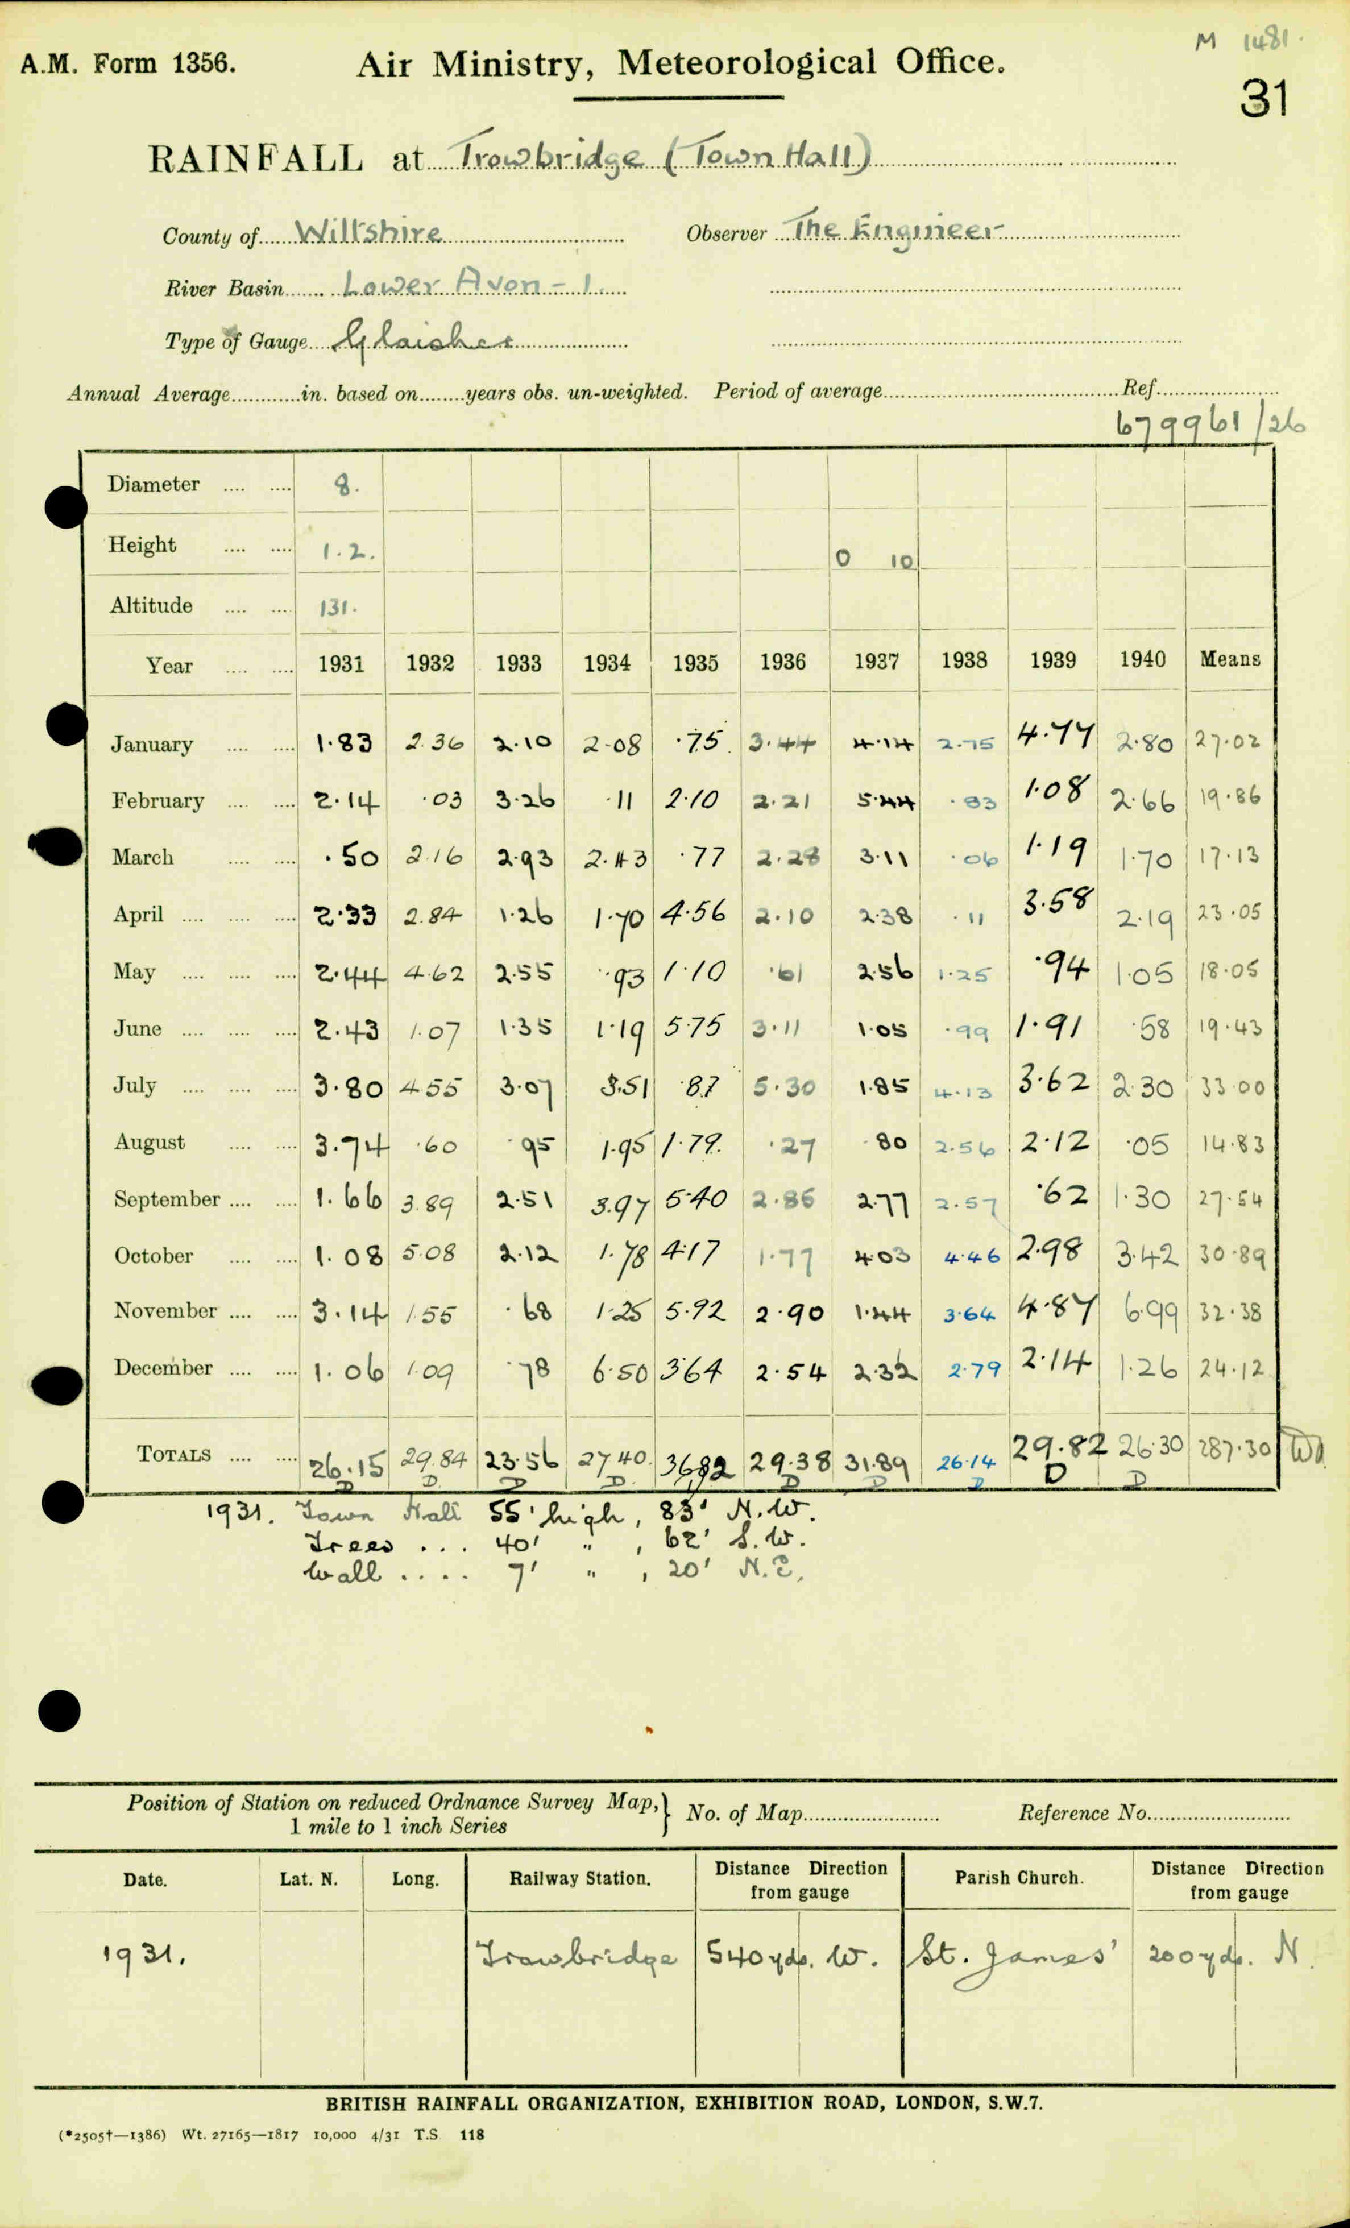 M 1481.
A.M. Form 1356. Air Ministry, Meteorological Office.
31
RAINFALL at Trowbridge (Town Hall)
County of Wiltshire Observer The Engineer
River Basin Lower Avon - 1.
Type of Gauge Glaisher
Annual Average............in. based on........years obs. un-weighted. Period of average........................................Ref.....................
679961/26
Diameter .... .... 8.
Height .... .... 1.2. 0 10
Altitude .... .... 131.
Year .... .... 1931 1932 1933 1934 1935 1936 1937 1938 1939 1940 Means
January .... .... 1.83 2.36 2.10 2.08 .75 3.44 4.14 2.75 4.77 2.80 27.02
February .... .... 2.14 .03 3.26 .11 2.10 2.21 5.44 .83 1.08 2.66 19.86
March .... .... .50 2.16 2.93 2.43 .77 2.28 3.11 .06 1.19 1.70 17.13
April .... .... .... 2.33 2.84 1.26 1.70 4.56 2.10 2.38 .11 3.58 2.19 23.05
May .... .... .... 2.44 4.62 2.55 .93 1.10 .61 2.56 1.25 .94 1.05 18.05
June .... .... .... 2.43 1.07 1.35 1.19 5.75 3.11 1.05 .99 1.91 .58 19.43
July .... .... .... 3.80 4.55 3.07 3.51 .87 5.30 1.85 4.13 3.62 2.30 33.00
August .... .... 3.74 .60 .95 1.95 1.79. .27 .80 2.56 2.12 .05 14.83
September .... .... 1.66 3.89 2.51 3.97 5.40 2.85 2.77 2.57 .62 1.30 27.54
October .... .... 1.08 5.08 2.12 1.78 4.17 1.77 4.03 4.46 2.98 3.42 30.89
November .... .... 3.14 1.55 .68 1.25 5.92 2.90 1.44 3.64 4.87 6.99 32.38
December .... .... 1.06 1.09 .78 6.50 3.64 2.54 2.32 2.79 2.14 1.26 24.12
TOTALS .... .... 26.15 29.84 23.56 27.40. 36.82 29.38 31.89 26.14 29.82 26.30 287.30
D D D D D D D D D
1931. Town Hall 55' high, 83' N.W.
Trees ... 40' " , 62' S.W.
Wall .... 7' " , 20' N.E.
Position of Station on reduced Ordnance Survey Map, } No. of Map........................ Reference No.........................
1 mile to 1 inch Series
Date. Lat. N. Long. Railway Station. Distance Direction from gauge Parish Church. Distance Direction from gauge
1931. Trowbridge 540 yds. W. St. James' 200 yds. N.
BRITISH RAINFALL ORGANIZATION, EXHIBITION ROAD, LONDON, S.W.7.
(*2505†—1386) Wt. 27165—1817 10,000 4/31 T.S. 118